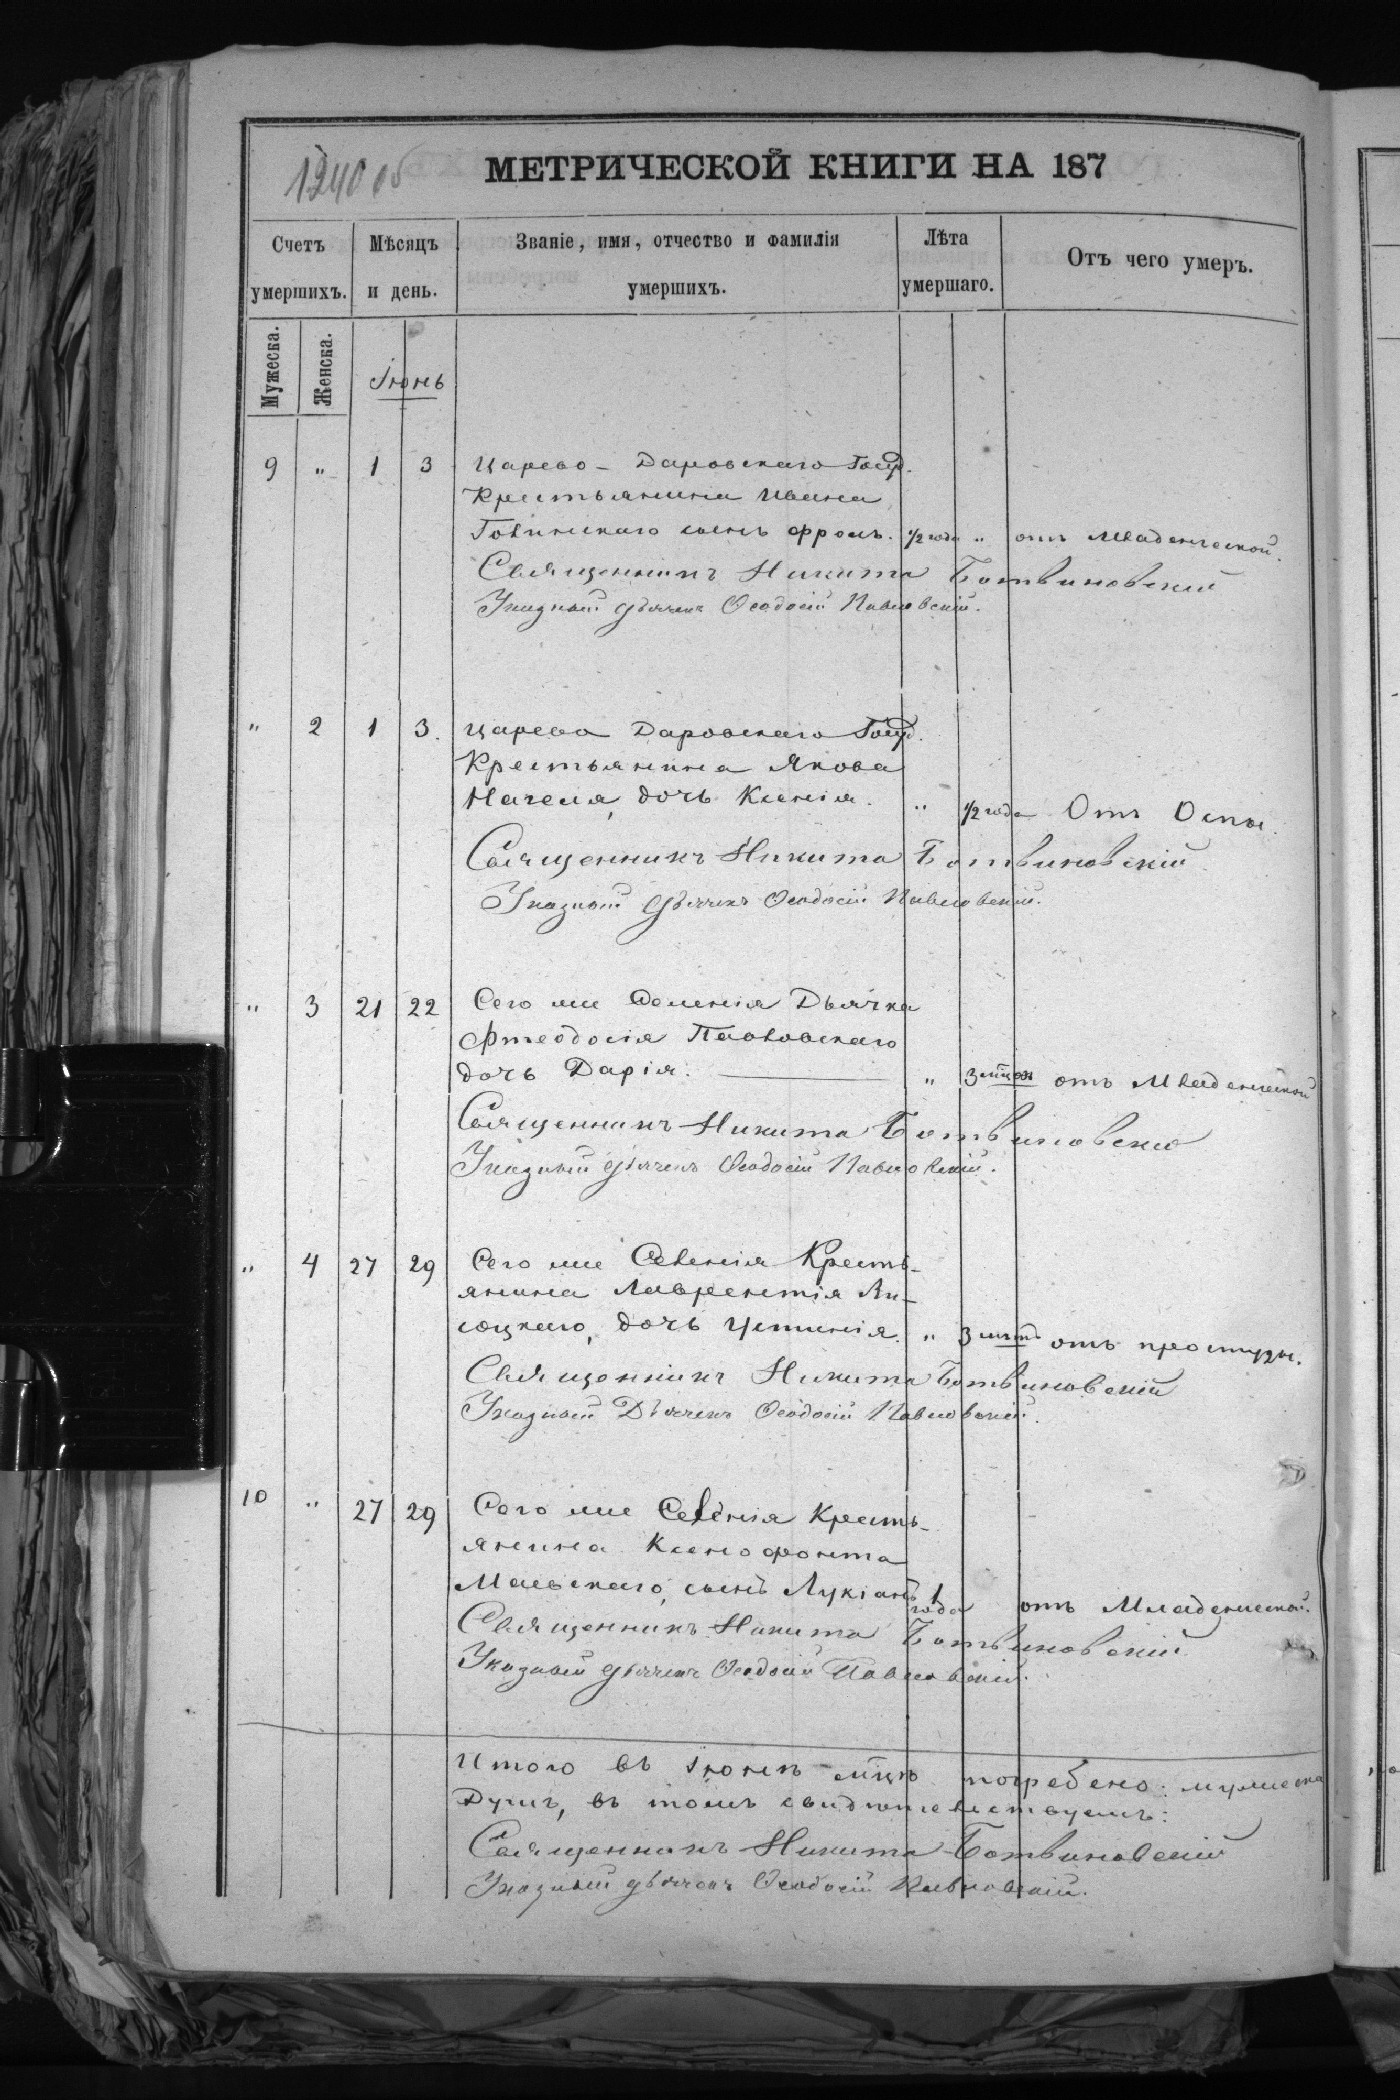 1240 об
МЕТРИЧЕСКОЙ КНИГИ НА 187
Счетъ умершихъ.
Мѣсяцъ и день.
Званіе, имя, отчество и фамилія умершихъ.
Лѣта умершаго.
Отъ чего умеръ.
Мужеска.
Женска.
Іюнь
9 " 1 3 Царево-Даровскаго Госуд.
Крестьянина Ивана
сынъ 1/2 года " отъ Младенческой.
Священникъ Никита Ботвиновскій
Указный дьячекъ Ѳеодосій Павловскій.
" 2 1 3. Царево Даровскаго Госуд.
Крестьянина Якова
Нагеля, дочь Ксенія. " 1/2 года Отъ Оспы.
Священникъ Никита Ботвиновскій
Указный дьячекъ Ѳеодосій Павловскій.
" 3 21 22 Сего же Селенія Дьячка
Фтеодосія Павловскаго
дочь Дарія. " 3 отъ Младенческой
Священникъ Никита Ботвиновскій
Указный дьячекъ Ѳеодосій Павловскій.
" 4 27 29 Сего же Селенія Кресть-
янина Лаврентія Ли-
соцкаго, дочь Устинія. " 3 отъ простуды.
Священникъ Никита Ботвиновскій
Указный Дьячекъ Ѳеодосій Павловскій.
10 " 27 29 Сего же Селенія Кресть-
янина Ксенофонта
Маевскаго, сынъ Лукіанъ 1 года отъ Младенческой.
Священникъ Никита Ботвиновскій
Указный дьячекъ Ѳеодосій Павловскій.
Итого въ Іюнѣ мцѣ погребено: мужеска
Душъ, въ томъ свидѣтельствуемъ:
Священникъ Никита Ботвиновскій
Указный дьячекъ Ѳеодосій Павловскій.